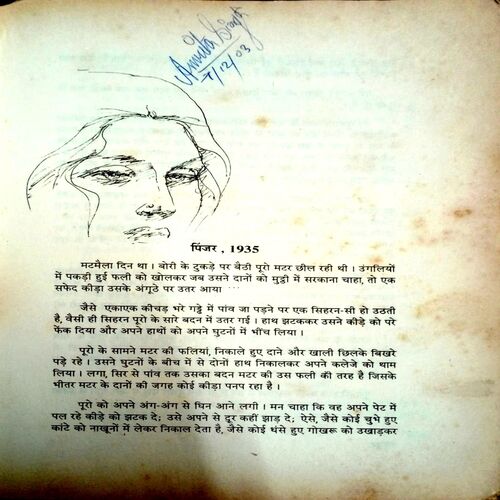 Amrita Singh
7/12/03
पिंजर , 1935
मटमैला दिन था । बोरी के टुकड़े पर बैठी पूरो मटर छील रही थी । उंगलियों
में पकड़ी हुई फली को खोलकर जब उसने दानों को मुट्ठी में सरकाना चाहा, तो एक
सफेद कीड़ा उसके अंगूठे पर उतर आया ···
जैसे एकाएक कीचड़ भरे गड्ढे में पांव जा पड़ने पर एक सिहरन-सी हो उठती
है, वैसी ही सिहरन पूरो के सारे बदन में उतर गई । हाथ झटककर उसने कीड़े को परे
फेंक दिया और अपने हाथों को अपने घुटनों में भींच लिया ।
पूरो के सामने मटर की फलियां, निकाले हुए दाने और खाली छिलके बिखरे
पड़े रहे । उसने घुटनों के बीच में से दोनों हाथ निकालकर अपने कलेजे को थाम
लिया । लगा, सिर से पांव तक उसका बदन मटर की उस फली की तरह है जिसके
भीतर मटर के दानों की जगह कोई कीड़ा पनप रहा है ।
पूरो को अपने अंग-अंग से घिन आने लगी । मन चाहा कि वह अपने पेट में
पल रहे कीड़े को झटक दे; उसे अपने से दूर कहीं झाड़ दे; ऐसे, जैसे कोई चुभे हुए
कांटे को नाखूनों में लेकर निकाल देता है, जैसे कोई धंसे हुए गोखरू को उखाड़कर